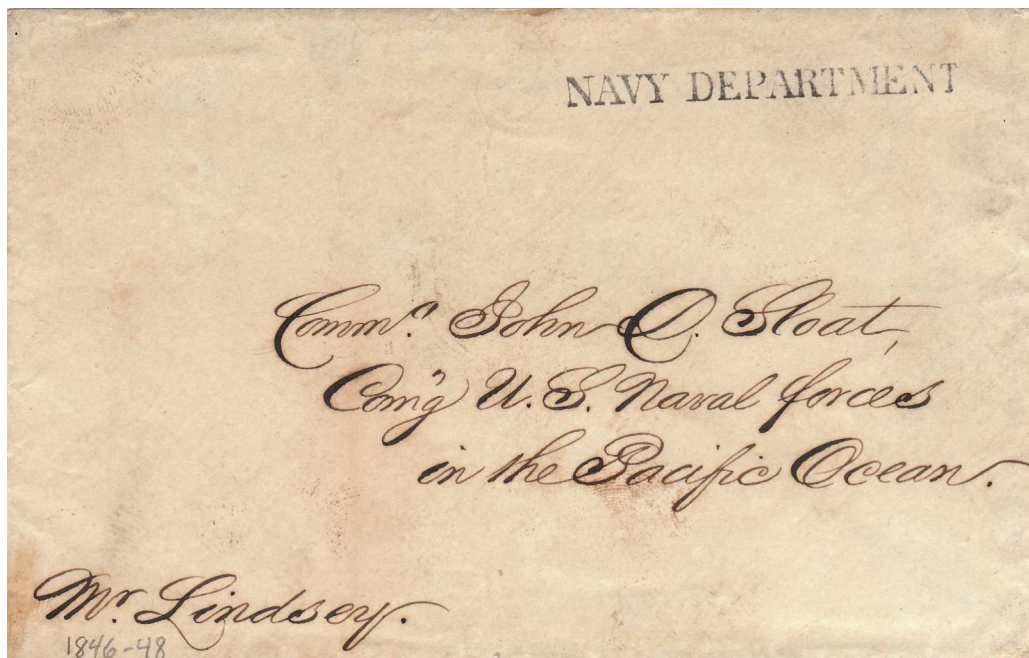 NAVY DEPARTMENT
Commo. John D. Sloat,
Com'g U. S. Naval forces
in the Pacific Ocean.
Mr. Lindsey.
1846-48